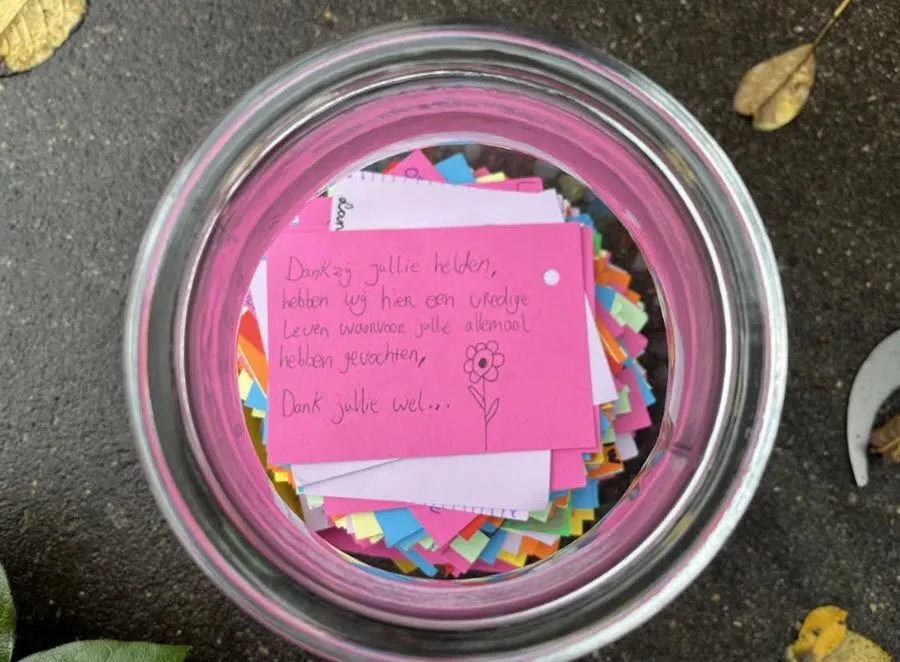 dan
Dankzij jullie helden,
hebben wij hier een vredige
Leven waarvoor jullie allemaal
hebben gevochten,
Dank jullie wel...